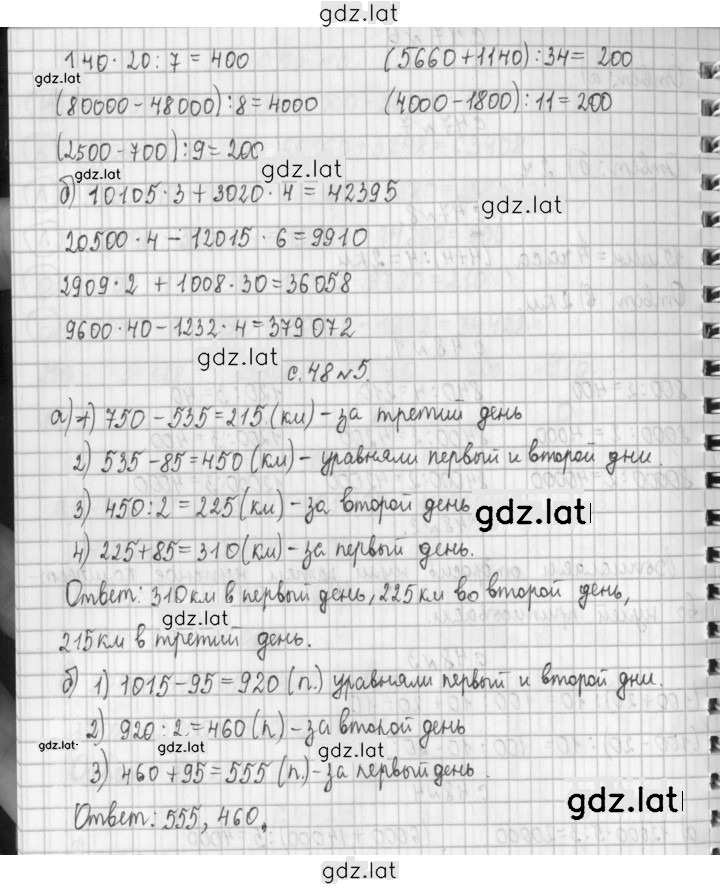 gdz.lat
140·20:7=400 (5660+1140):34=200
gdz.lat
(80000-48000):8=4000 (4000-1800):11=200
(2500-700):9=200
gdz.lat gdz.lat
б) 10105·3+3020·4=42395
gdz.lat
20500·4-12015·6=9910
2909·2+1008·30=36058
9600·40-1232·4=379072
gdz.lat
с.48 №5.
а) 1) 750-535=215 (км) - за третий день
2) 535-85=450 (км) - уравняли первый и второй дни.
3) 450:2=225 (км) - за второй день
gdz.lat
4) 225+85=310 (км) - за первый день.
Ответ: 310 км в первый день, 225 км во второй день,
gdz.lat
215 км в третий день.
б) 1) 1015-95=920 (п.) уравняли первый и второй дни.
2) 920:2=460 (п) - за второй день
gdz.lat gdz.lat gdz.lat
3) 460+95=555 (п.) - за первый день.
gdz.lat
Ответ: 555, 460.
gdz.lat